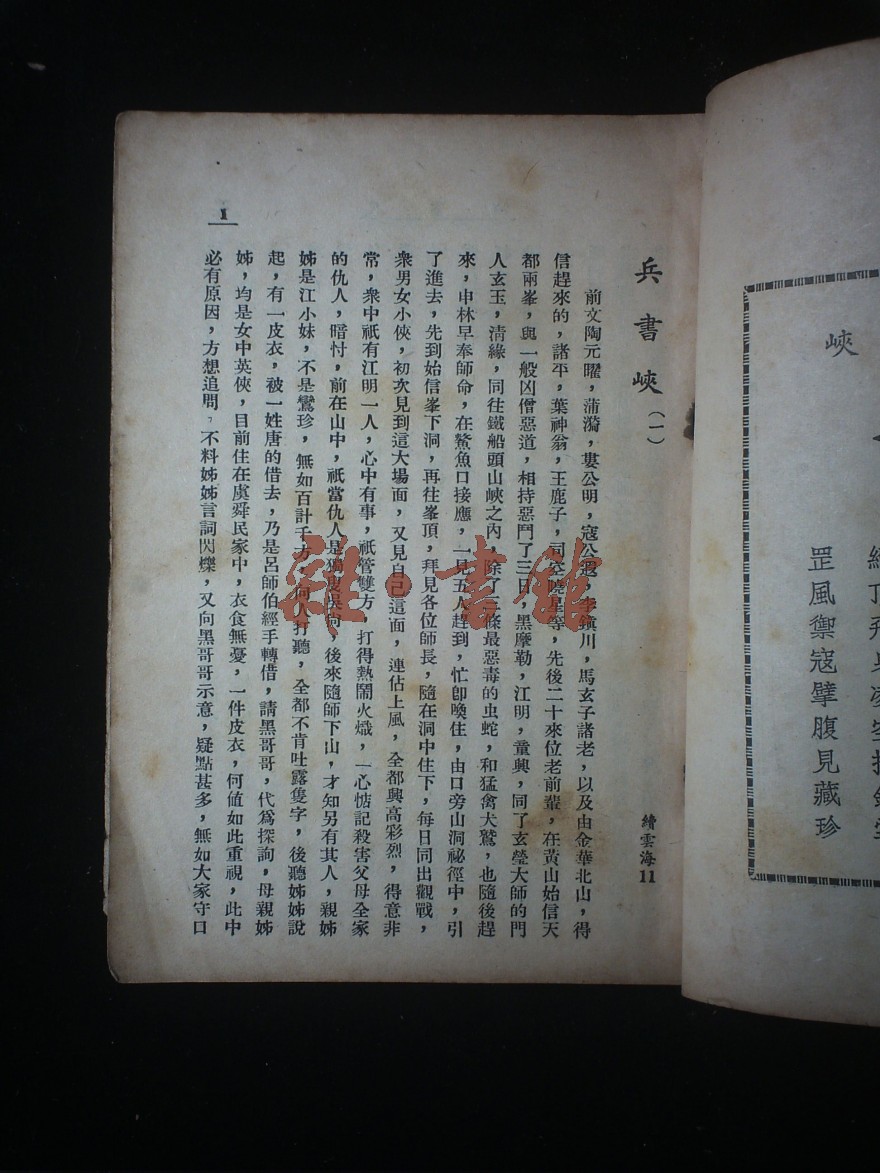 峽
罡風禦寇擘腹見藏珍
兵書峽(一)
續雲海11
前文陶元曜,蒲漪,婁公明,寇公遐,李鎮川,馬玄子諸老,以及由金華北山,得
信趕來的,諸平,葉神翁,王鹿子,司空曉星等,先後二十來位老前輩,在黃山始信天
都兩峯,與一般凶僧惡道,相持惡鬥了三日,黑摩勒,江明,童興,同了玄瑩大師的門
人玄玉,清緣,同往鐵船頭山峽之內,除了一條最惡毒的虫蛇,和猛禽犬鷲,也隨後趕
來,申林早奉師命,在鰲魚口接應,一見五人趕到,忙卽喚住,由口旁山洞祕徑中,引
了進去,先到始信峯下洞,再往峯頂,拜見各位師長,隨在洞中住下,每日同出觀戰,
衆男女小俠,初次見到這大場面,又見自己這面,連佔上風,全都興高彩烈,得意非
常,衆中祇有江明一人,心中有事,祇管雙方,打得熱鬧火熾,一心惦記殺害父母全家
的仇人,暗忖,前在山中,祇當仇人是獨叟吳尚,後來隨師下山,才知另有其人,親姊
姊是江小妹,不是鸞珍,無如百計千方,向人打聽,全都不肯吐露隻字,後聽姊姊說
起,有一皮衣,被一姓唐的借去,乃是呂師伯經手轉借,請黑哥哥,代爲探詢,母親姊
姊,均是女中英俠,目前住在虞舜民家中,衣食無憂,一件皮衣,何値如此重視,此中
必有原因,方想追問,不料姊姊言詞閃爍,又向黑哥哥示意,疑點甚多,無如大家守口
1
雜·書館